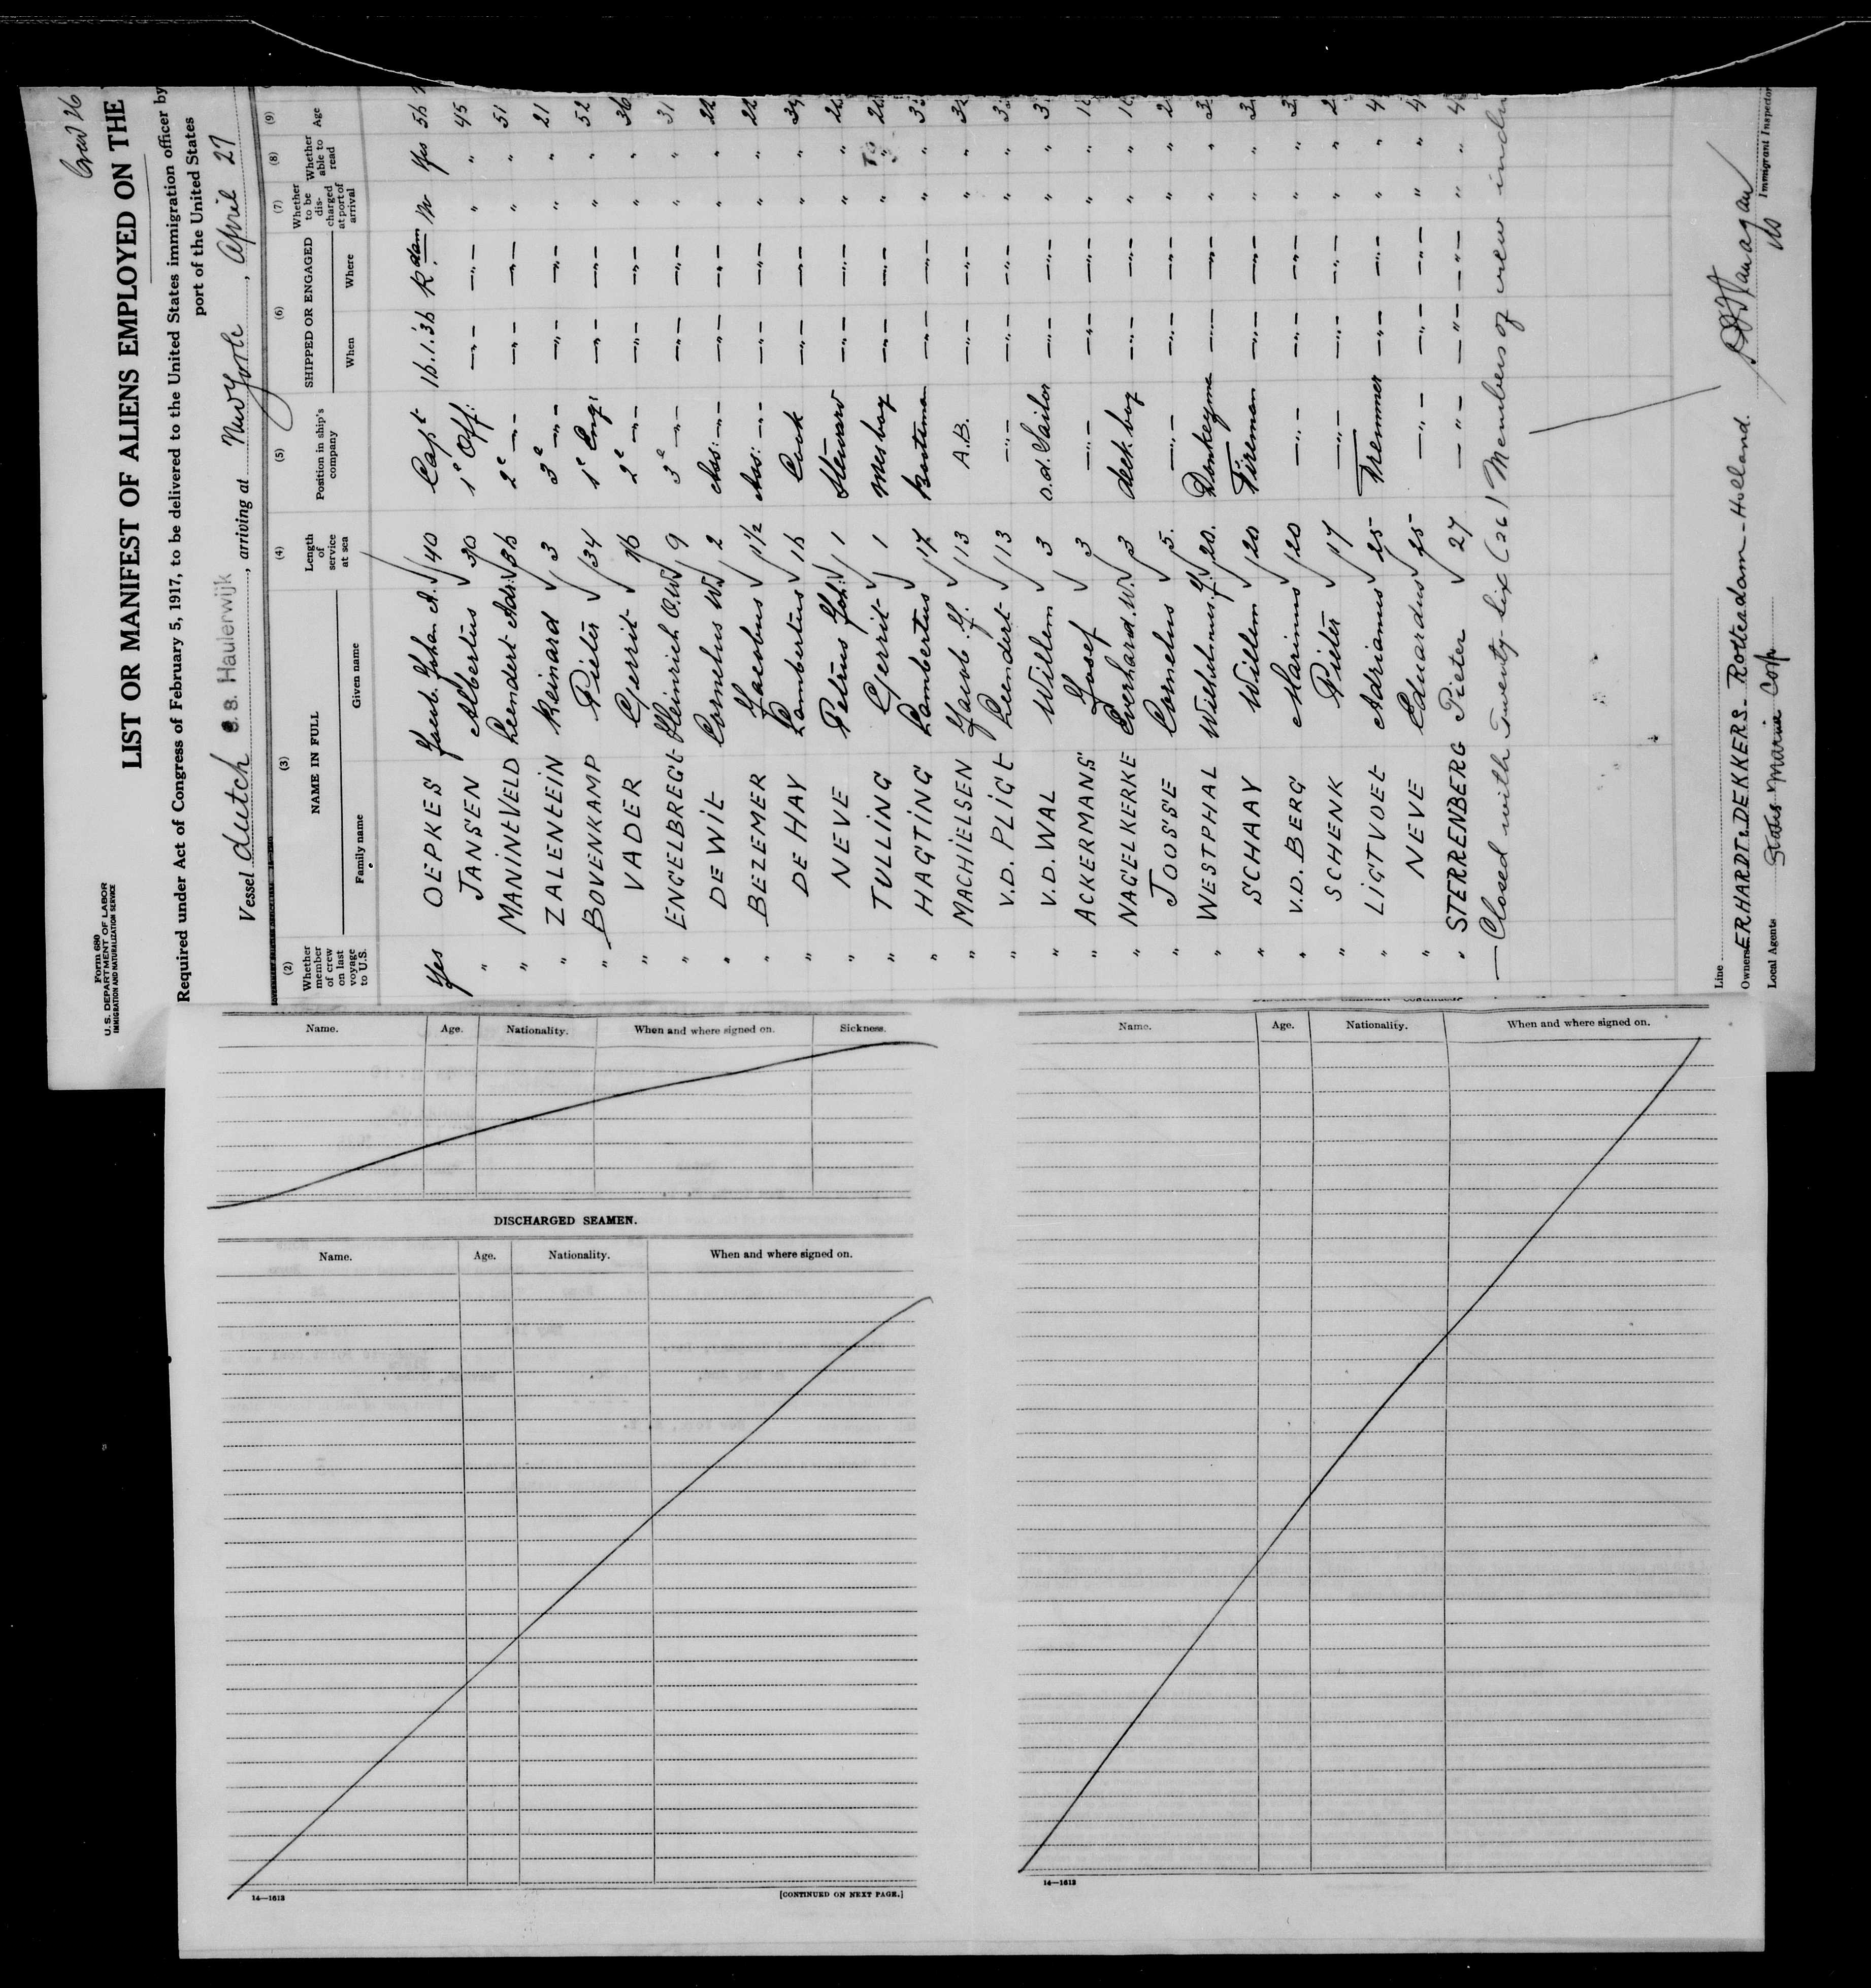 Crew 26
Form 680
U. S. DEPARTMENT OF LABOR
IMMIGRATION AND NATURALIZATION SERVICE
LIST OR MANIFEST OF ALIENS EMPLOYED ON THE
Required under Act of Congress of February 5, 1917, to be delivered to the United States immigration officer by
port of the United States
Vessel Dutch S. S. Haulerwijk, arriving at New York, April 27
(2) (3) (4) (5) (6) (7) (8) (9)
Whether member of crew on last voyage to U.S. NAME IN FULL Length of service at sea Position in ship's company SHIPPED OR ENGAGED Whether to be discharged at port of arrival Whether able to read Age
Family name Given name When Where
Yes OEPKES Jacob. Johan A. 40 Capt 16.1.36 R'dam No Yes 56
" JANSEN Albertus 30 1e Off: —"— —"— " " 45
" MANINEVELD Leendert Adr. 36 2e —"— —"— —"— " " 51
" ZALENTEIN Reinard 3 3e —"— —"— —"— " " 21
" BOVENKAMP Pieter 34 1e Eng: —"— —"— " " 52
" VADER Gerrit 16 2e —"— —"— —"— " " 36
" ENGELBREGT Heinrich O.W. 9 3e —"— —"— —"— " " 31
" DE WIT Cornelus W. 2 Ass: —"— —"— —"— " " 22
" BEZEMER Jacobus 1 1/2 Ass: —"— —"— —"— " " 22
" DE HAY Lambertus 16 Cook —"— —"— " "
" NEVE Petrus Joh. 1 Steward —"— —"— " "
" TULLING Gerrit 1 Mesboy —"— —"— " "
" HAGTING Lambertus 17 —"— —"— " "
" MACHIELSEN Jacob. J. 13 A.B. —"— —"— " "
" V.D. PLIGT Leendert 13 —"— —"— —"— " "
" V.D. WAL Willem 3 o.d. Sailor —"— —"— " "
" ACKERMANS Josef 3 —"— —"— —"— " "
" NAGELKERKE Everhard. W. 3 deck boy —"— —"— " "
" JOOSSE Cornelus 5. —"— —"— —"— " "
" WESTPHAL Wilhelmus. J. 20. Donkeyman —"— —"— " "
" SCHAAY Willem 20 Fireman —"— —"— " "
" V.D. BERG Marinus 20 —"— —"— —"— " "
" SCHENK Pieter 17 —"— —"— —"— " "
" LIGTVOET Adrianus 25 Tremmer —"— —"— " "
" NEVE Eduardus 25 —"— —"— —"— " "
" STERRENBERG Pieter 27 —"— —"— —"— " "
— Closed with Twenty-six (26) Members of crew
Line
Owners ERHARDT & DEKKERS. Rotterdam — Holland.
Local Agents States Marine Corp.
Immigrant Inspector
Name. Age. Nationality. When and where signed on. Sickness.
DISCHARGED SEAMEN.
Name. Age. Nationality. When and where signed on.
14—1613 [CONTINUED ON NEXT PAGE.]
Name. Age. Nationality. When and where signed on.
14—1613